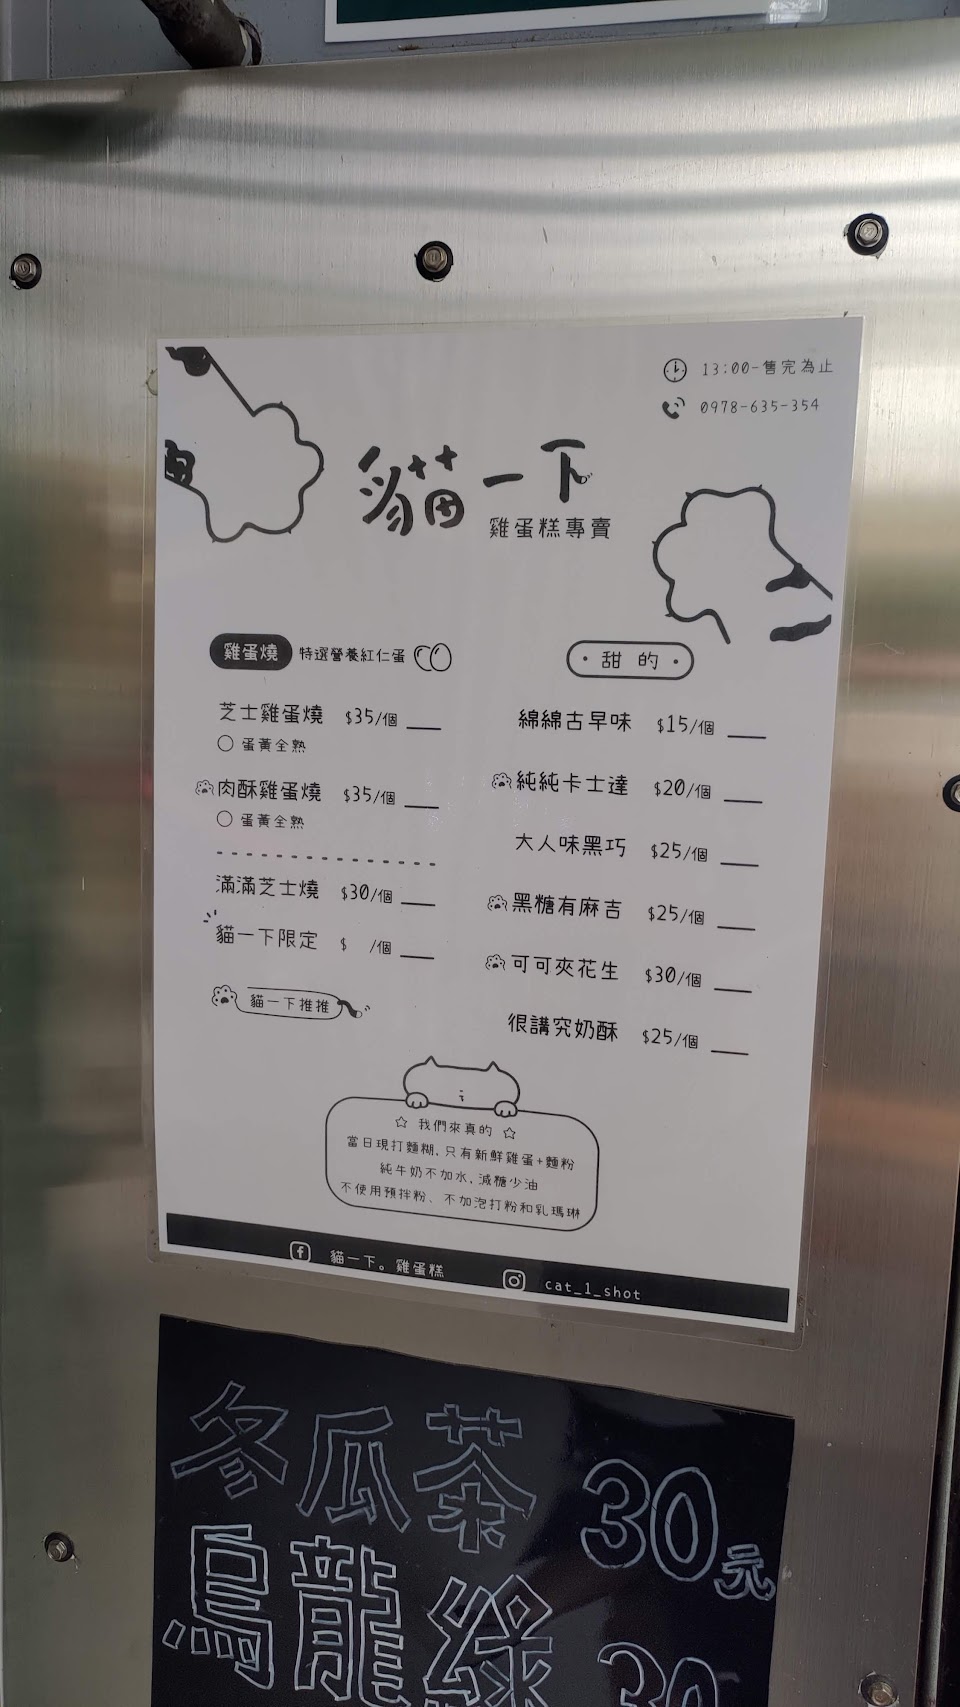 13:00-售完為止
0978-635-354
貓一下
雞蛋糕專賣
雞蛋燒 特選營養紅仁蛋
芝士雞蛋燒 $35/個
蛋黃全熟
肉酥雞蛋燒 $35/個
蛋黃全熟
滿滿芝士燒 $30/個
貓一下限定 $ /個
貓一下推推
·甜的·
綿綿古早味 $15/個
純純卡士達 $20/個
大人味黑巧 $25/個
黑糖有麻吉 $25/個
可可夾花生 $30/個
很講究奶酥 $25/個
☆ 我們來真的 ☆
當日現打麵糊,只有新鮮雞蛋+麵粉
純牛奶不加水,減糖少油
不使用預拌粉、不加泡打粉和乳瑪琳
貓一下。雞蛋糕 cat_1_shot
冬瓜茶 30元
烏龍綠 30